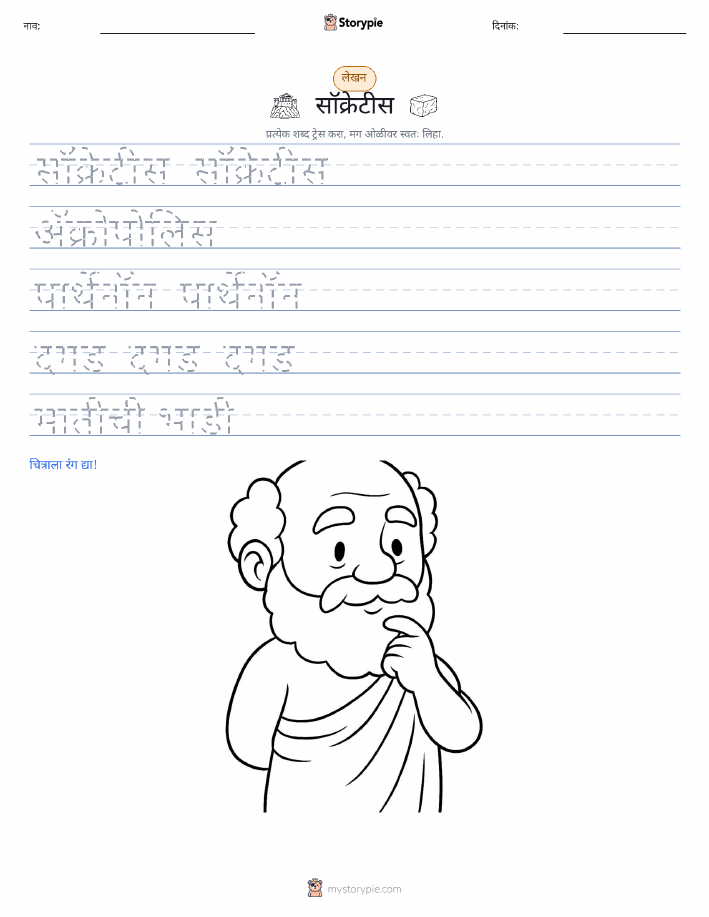 नाव:
Storypie
दिनांक:
लेखन
सॉक्रेटीस
प्रत्येक शब्द ट्रेस करा, मग ओळीवर स्वतः लिहा.
सॉक्रेटीस सॉक्रेटीस
ॲक्रोपोलिस
पार्थेनॉन पार्थेनॉन
दगड दगड दगड
मातीची भांडी
चित्राला रंग द्या!
mystorypie.com